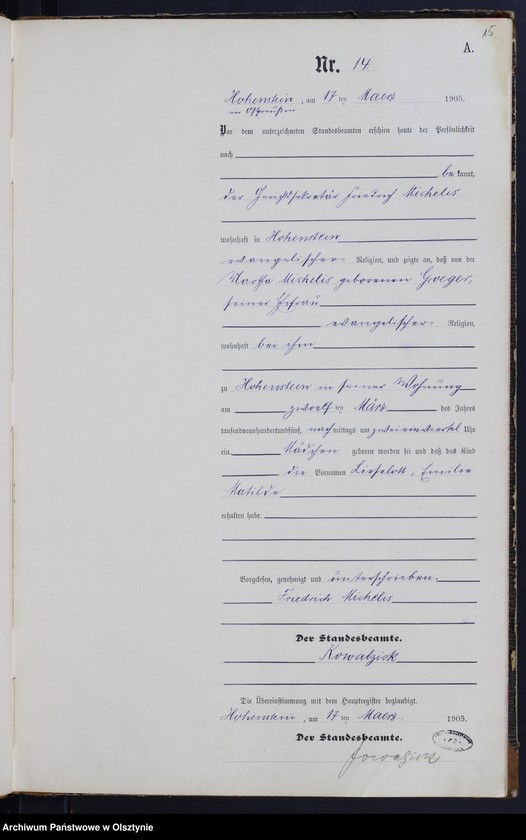 15
A.
Nr. 14
Hohenstein, am 17 ten Maerz 1905.
in Ostpreußen
Vor dem unterzeichneten Standesbeamten erschien heute der Persönlichkeit
nach
be kannt,
der Gerichtssekretär Friedrich Michelis
wohnhaft in Hohenstein
evangelischer Religion, und zeigte an, daß von der
Martha Michelis geborenen Groeger,
seiner Ehefrau
evangelischer Religion,
wohnhaft bei ihm
zu Hohenstein in seiner Wohnung
am zwoelf ten März des Jahres
tausendneunhundertundfünf, nachmittags um zweieinviertel Uhr
ein Mädchen geboren worden sei und daß das Kind
die Vornamen Lieselott, Emilie
Matilde
erhalten habe.
Vorgelesen, genehmigt und unterschrieben.
Friedrich Michelis
Der Standesbeamte.
Kowalzick
Die Übereinstimmung mit dem Hauptregister beglaubigt.
Hohenstein, am 17 ten Maerz 1905.
Der Standesbeamte.
Kowalzick
Archiwum Państwowe w Olsztynie